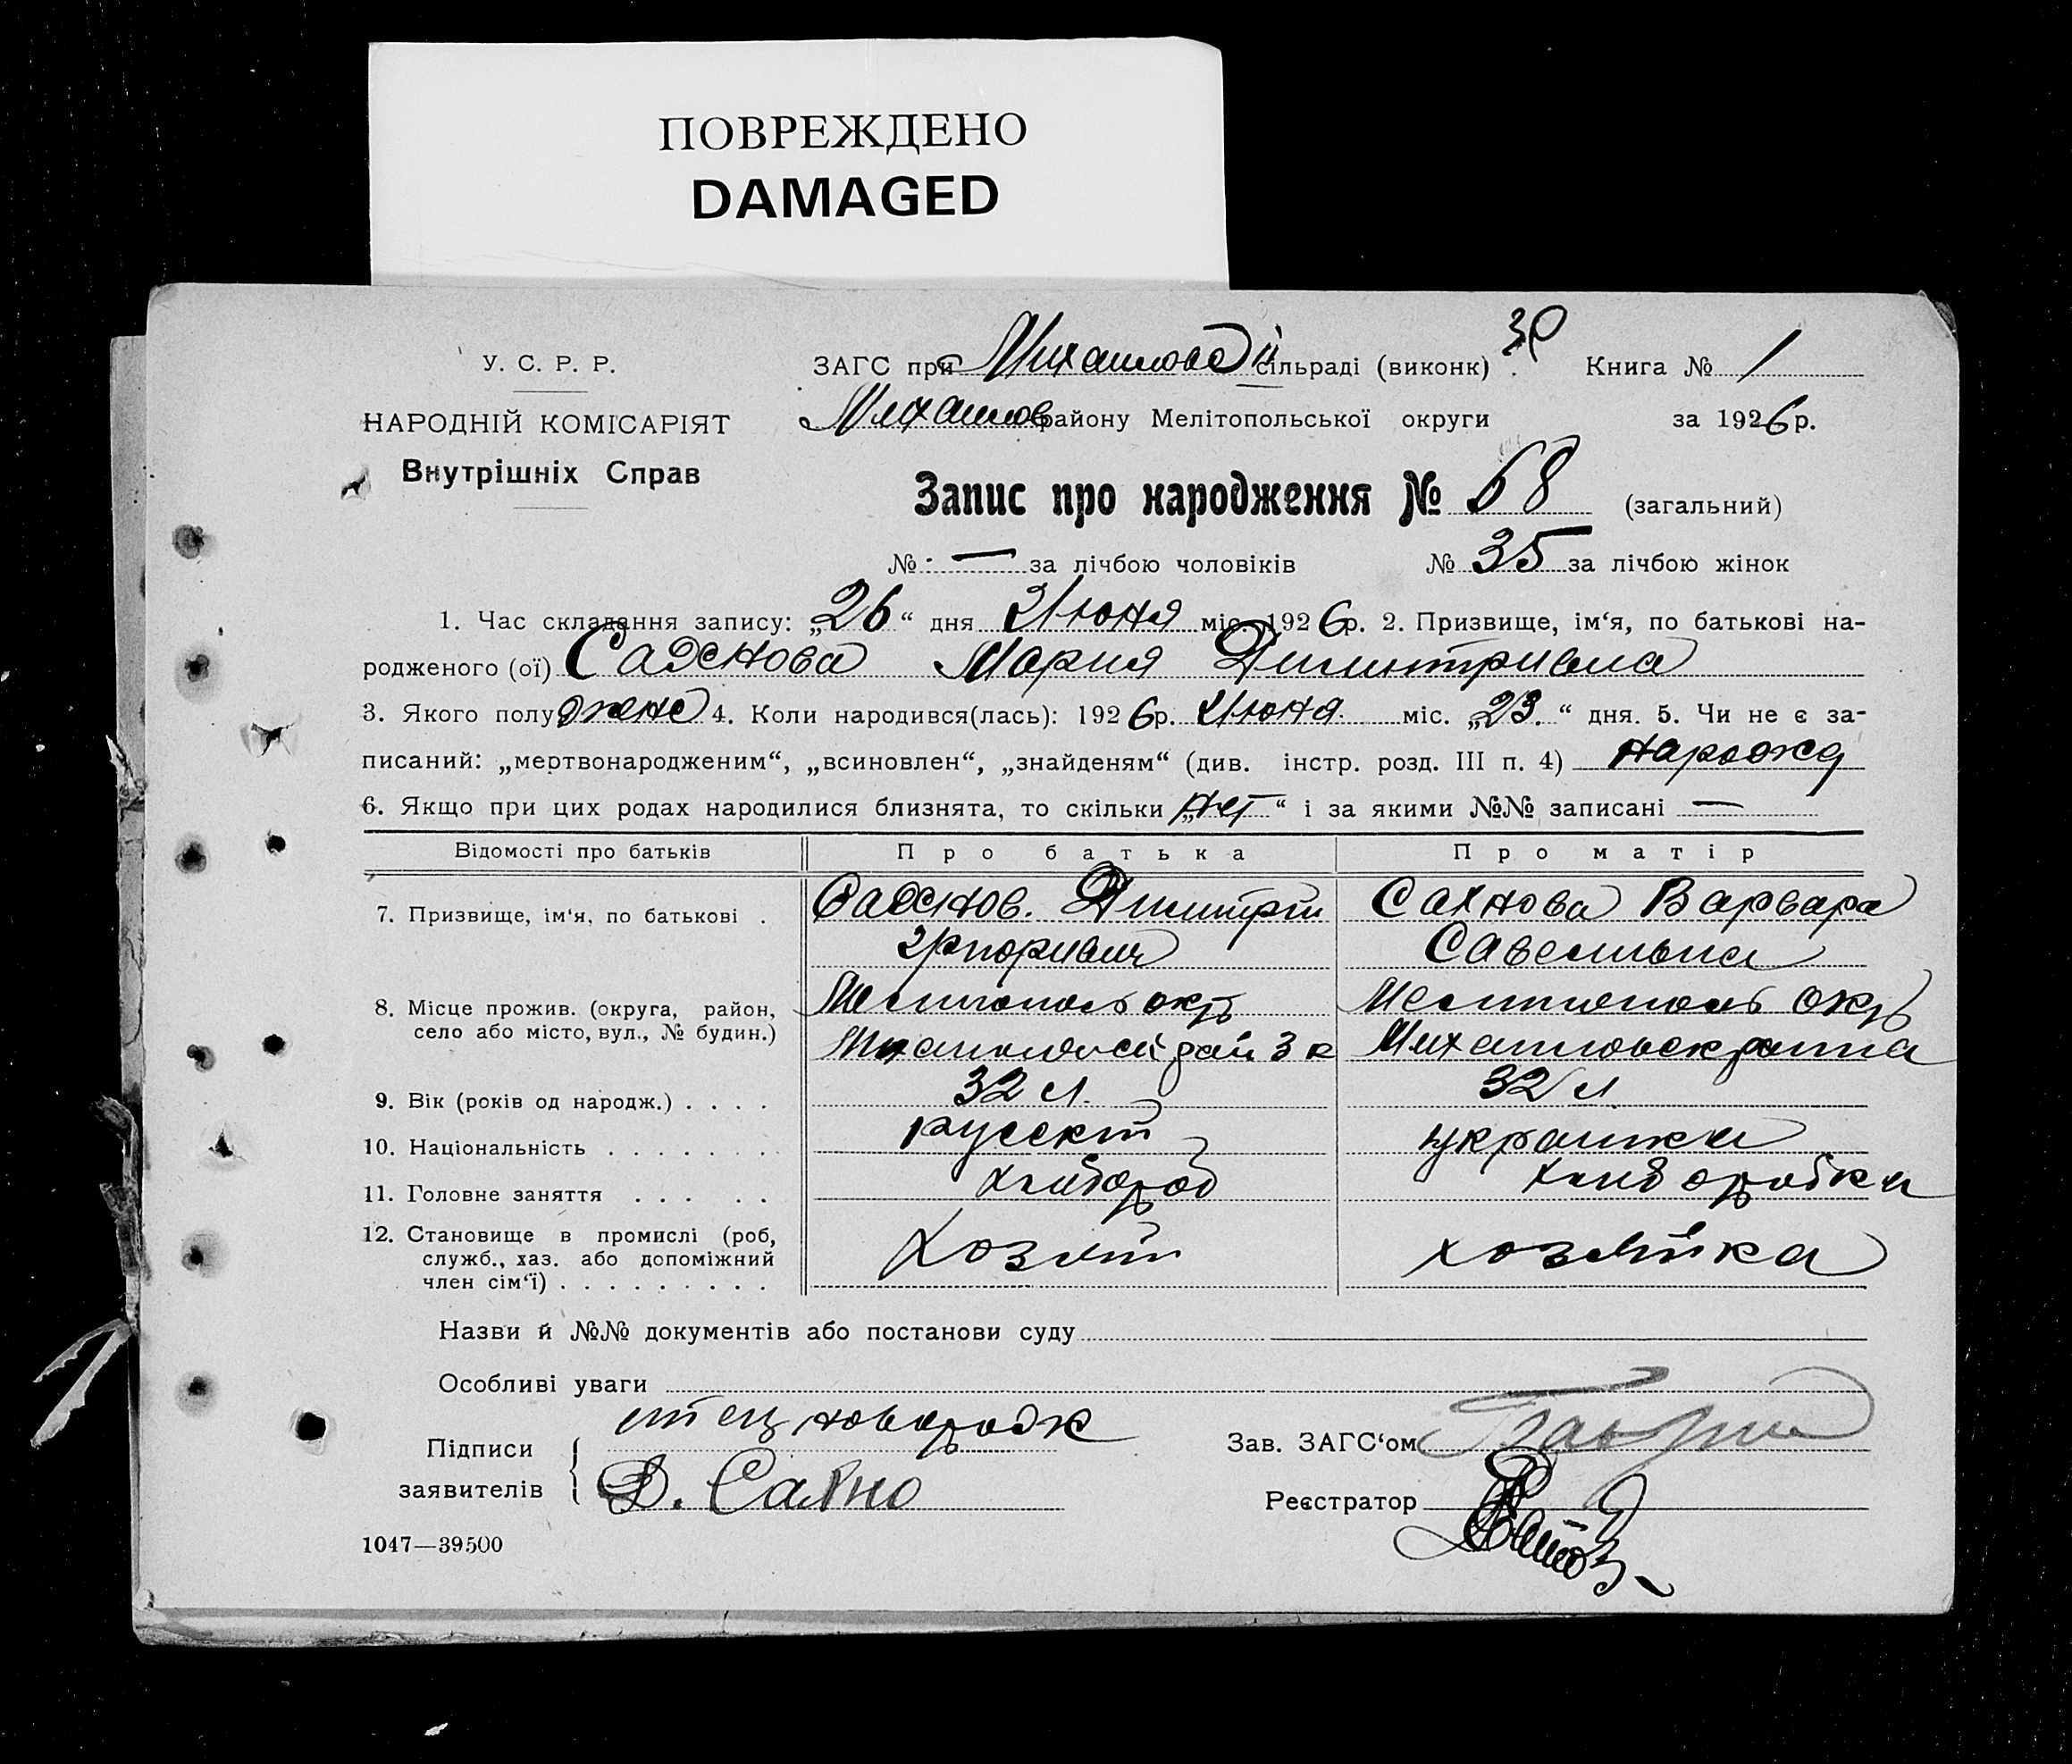 ПОВРЕЖДЕНО
DAMAGED
У. С. Р. Р.
ЗАГС при Михайлов сільраді (виконк) Книга № 1
НАРОДНІЙ КОМІСАРІЯТ
Михайлов району Мелітопольської округи за 1926 р.
Внутрішніх Справ
Запис про народження № 68 (загальний)
№ — за лічбою чоловіків № 35 за лічбою жінок
1. Час складання запису: „26“ дня Июня міс. 1926 р. 2. Призвище, ім‘я, по батькові на-
родженого (ої) Мария Димитриевна
3. Якого полу жене 4. Коли народився(лась): 1926 р. Июня міс. „23“ дня. 5. Чи не є за-
писаний: „мертвонародженим“, „всиновлен“, „знайденям“ (див. інстр. розд. III п. 4) нарожд
6. Якщо при цих родах народилися близнята, то скільки „нет“ і за якими №№ записані —
Відомості про батьків Про батька Про матір
7. Призвище, ім‘я, по батькові . Димитрий Сахнова Варвара
Савельевна
8. Місце прожив. (округа, район, Мелитополь окр Мелитополь окр
село або місто, вул., № будин.) Михайловский рай 3 к
9. Вік (років од народж.) . . . . 32 л. 32 л
10. Національність . . . . . . . русский украинка
11. Головне заняття . . . . . хлибороб хлиборобка
12. Становище в промислі (роб,
служб., хаз. або допоміжний хозяин хозяйка
член сім‘ї) . . . . . . . . .
Назви й №№ документів або постанови суду
Особливі уваги
отец новорожд
Підписи
заявителів Д. Сахно
Зав. ЗАГС‘ом
Реєстратор
1047—39500